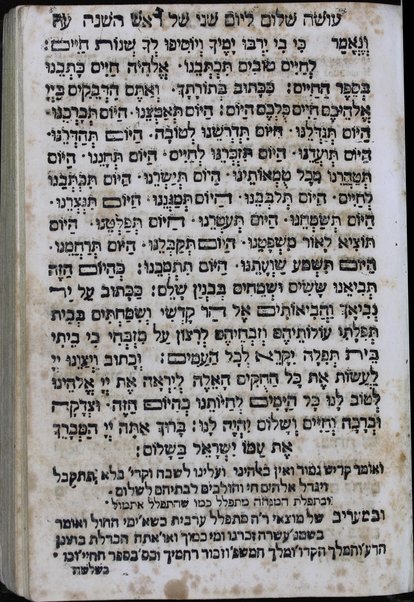 עושה שלום ליום שני של ראש השנה
וְנֶאֱמַר כִּי בִי יִרְבּוּ יָמֶיךָ וְיוֹסִיפוּ לְךָ שְׁנוֹת חַיִּים:
לְחַיִּים טוֹבִים תִּכְתְּבֵנוּ אֱלֹהִים חַיִּים כָּתְבֵנוּ
בְּסֵפֶר הַחַיִּים: כַּכָּתוּב בְּתוֹרָתֶךָ וְאַתֶּם הַדְּבֵקִים בַּיְיָ
אֱלֹהֵיכֶם חַיִּים כֻּלְּכֶם הַיּוֹם: הַיּוֹם תְּאַמְּצֵנוּ הַיּוֹם תְּבָרְכֵנוּ
הַיּוֹם תְּגַדְּלֵנוּ הַיּוֹם תִּדְרְשֵׁנוּ לְטוֹבָה הַיּוֹם תְּהַדְּרֵנוּ
הַיּוֹם תְּוַעֲדֵנוּ הַיּוֹם תִּזְכְּרֵנוּ לְחַיִּים הַיּוֹם תְּחָנֵּנוּ הַיּוֹם
תְּטַהֲרֵנוּ מִכָּל טֻמְאוֹתֵינוּ הַיּוֹם תְּיַשְּׁרֵנוּ הַיּוֹם תִּכְתְּבֵנוּ
לְחַיִּים הַיּוֹם תְּלַבְּבֵנוּ הַיּוֹם תְּמַגְּנֵנוּ הַיּוֹם תִּנְצְרֵנוּ
הַיּוֹם תְּשַׂמְּחֵנוּ הַיּוֹם תְּעַטְּרֵנוּ הַיּוֹם תְּפַלְּטֵנוּ הַיּוֹם
תּוֹצִיא לָאוֹר מִשְׁפָּטֵנוּ הַיּוֹם תְּקַבְּלֵנוּ הַיּוֹם תְּרַחֲמֵנוּ
הַיּוֹם תִּשְׁמַע שַׁוְעָתֵנוּ הַיּוֹם תִּתְמְכֵנוּ: כְּהַיּוֹם הַזֶּה
תְּבִיאֵנוּ שָׂשִׂים וּשְׂמֵחִים בְּבִנְיַן שָׁלֵם: כַּכָּתוּב עַל יַד
נְבִיאֶךָ וַהֲבִיאוֹתִים אֶל הַר קָדְשִׁי וְשִׂמַּחְתִּים בְּבֵית
תְּפִלָּתִי עוֹלוֹתֵיהֶם וְזִבְחֵיהֶם לְרָצוֹן עַל מִזְבְּחִי כִּי בֵיתִי
בֵּית תְּפִלָּה יִקָּרֵא לְכָל הָעַמִּים: וְכָתוּב וַיְצַוֵּנוּ יְיָ
לַעֲשׂוֹת אֶת כָּל הַחֻקִּים הָאֵלֶּה לְיִרְאָה אֶת יְיָ אֱלֹהֵינוּ
לְטוֹב לָנוּ כָּל הַיָּמִים לְחַיּוֹתֵנוּ כְּהַיּוֹם הַזֶּה: וּצְדָקָה
וּבְרָכָה וְחַיִּים וְשָׁלוֹם יִהְיֶה לָנוּ: בָּרוּךְ אַתָּה יְיָ הַמְבָרֵךְ
אֶת עַמּוֹ יִשְׂרָאֵל בַּשָּׁלוֹם:
ואומר קדיש גמור ואין כאלהינו ועלינו לשבח וקדי' בלא תתקבל
ויגדל אלהים חי והולכים לבתיהם לשלום
ובתפלת המנחה מתפלל כמו שהתפלל אתמול
ובמעריב של מוצאי ר"ה מתפלל ערבית כשאר ימי החול ואומר
בשמנ' עשרה זכרנו ומי כמוך ואו' אתה הבדלת בחונן
הדע' והמלך הקדו' ומלך המשפ' ווכור רחמיך וכס' בספר חחיי' וכו'
בשלשת